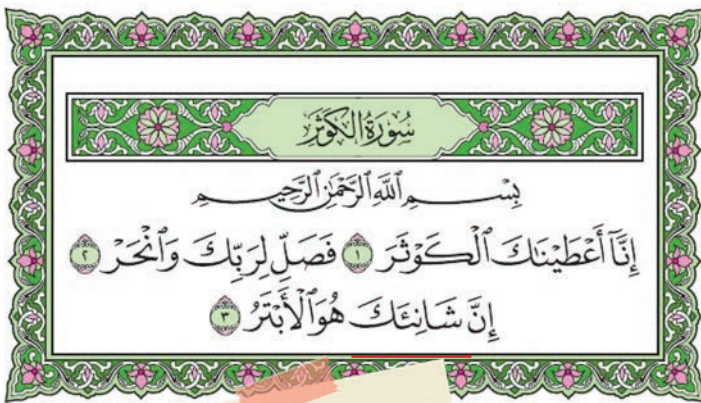 سُورَةُ الكَوثَرِ
بِسْمِ اللَّهِ الرَّحْمَٰنِ الرَّحِيمِ
إِنَّآ أَعْطَيْنَٰكَ ٱلْكَوْثَرَ ١ فَصَلِّ لِرَبِّكَ وَٱنْحَرْ ٢
إِنَّ شَانِئَكَ هُوَ ٱلْأَبْتَرُ ٣